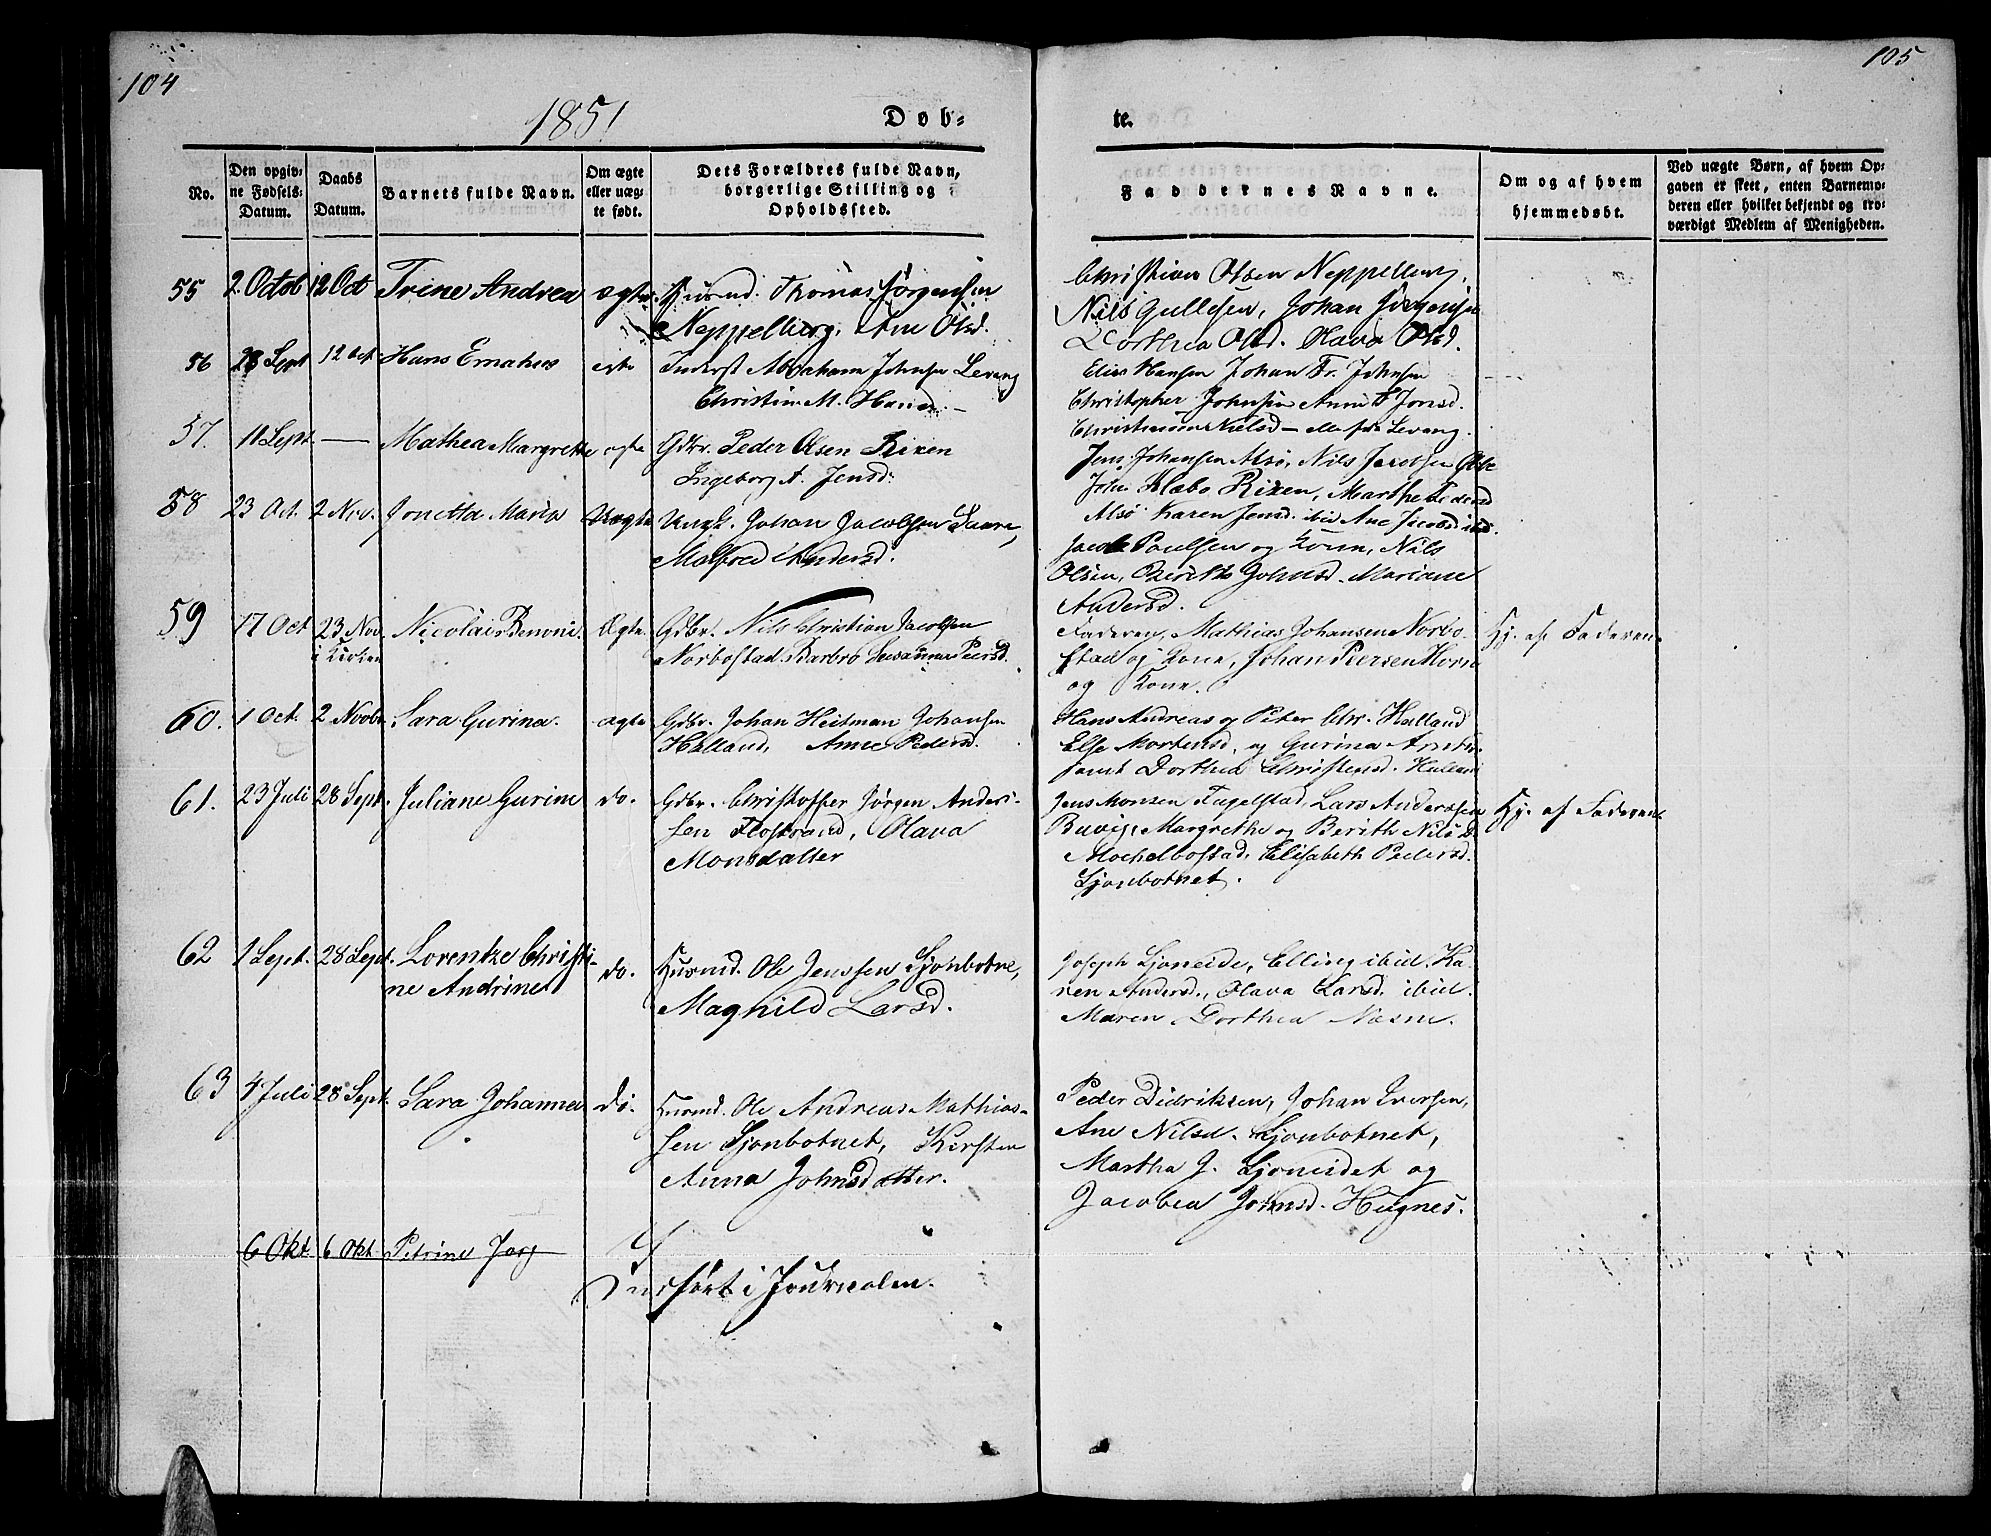 104
105
1851
Døb-
te.
No.
Den opgiv-
ne Fødsels-
Datum.
Daabs
Datum.
Barnets fulde Navn.
Om ægte
eller uæg-
te født.
Dets Forældres fulde Navn,
borgerlige Stilling og
Opholdssted.
Faddernes Navne.
Om og af hvem
hjemmedøbt.
Ved uægte Børn, af hvem Op-
gaven er skeet, enten Barnemo-
deren eller hvilket bekjendt og tro-
værdigt Medlem af Menigheden.
55 2 Octob 12 Oct Trine Andrea ægte Huusmd. Thomas Jørgensen
Neppelberg, Ane Olsd.
Christian Olsen Neppelberg,
Nils Gullesen, Johan Jørgensen
Dorthea Olsd. Olava Olsd.
56 28 Sept 12 Oct Hans Emahus egte Inderst Abraham Johnsen Levang
Christin M. Hansd. –
Elias Hansen Johan Fr. Johnsen
Christopher Johnsen Anne Jonsd.
Nielsd – alle fra Levang.
57. 11 Sept. — Mathea Margrethe ægte Gdbr. Peder Olsen Rixen
Ingeborg A. Jensd:
Jens Johansen Alsø, Nils Jacobsen
John Rixen, Marthe Pedersd
Alsø Karen Jensd. ibid Ane Jacobsd ibid.
58 23 Oct. 2 Nov. Jonetta Maria Uægte Ungk. Johan Jacobsen
Malfred Andersd.
Jacob Paulsen og Kone, Nils
Olsen, Berith Johnsd. Mariane
Andersd.
59 17 Oct 23 Nov. Nicolai Benoni. Ægte. Gdbr. Nils Christian Jacobsen
i Kirken Norbostad. Barbro Susanna Peersd.
Faderen, Mathias Johansen Norbo-
stad og Kone, Johan Peersen Horn
og Kone.
Hj. af Faderen.
60. 1 Oct. 2 Novbr. Sara Gurina. ægte Gdbr. Johan Heitman Johansen
Halland, Anne Pedersd.
Hans Andreas og Peter Chr. Halland
Else Mortensd, og Gurina
samt Dorthea Christensd. Halland
61. 23 Juli 28 Sept. Juliane Gurine do. Gdbr. Christoffer Jørgen Ander-
sen Flostrand, Olava
Monsdatter
Jens Monsen Fagelstad, Lars Anderssen
Buvig, Margrethe og Berith Nils D.
Mochelbostad, Elisabeth Pedersd.
Sjonbotnet.
Hj. af Faderen.
62 1 Sept. 28 Sept. Lorentze Christi-
ne Andrine do. Huusmd. Ole Jenssen Sjonbotne,
Magnild Larsd.
Joseph Sjoneide, Elling ibid. Ka-
ren Andersd., Olava Larsd. ibid.
Maren Dorthea Næsne.
63 4 Juli 28 Sept. Sara Johanna do. Huusmd. Ole Andreas Mathias-
sen Sjonbotnet, Kirsten
Anna Johnsdatter.
Peder Didriksen, Johan Iversen,
Ane Nilsd. Sjonbotnet,
Martha J. Sjoneidet og
Jacobea Johnsd. Hugnes.
6 Okt. 6 Okt. Petrine Jorg
Indført i Journalen.